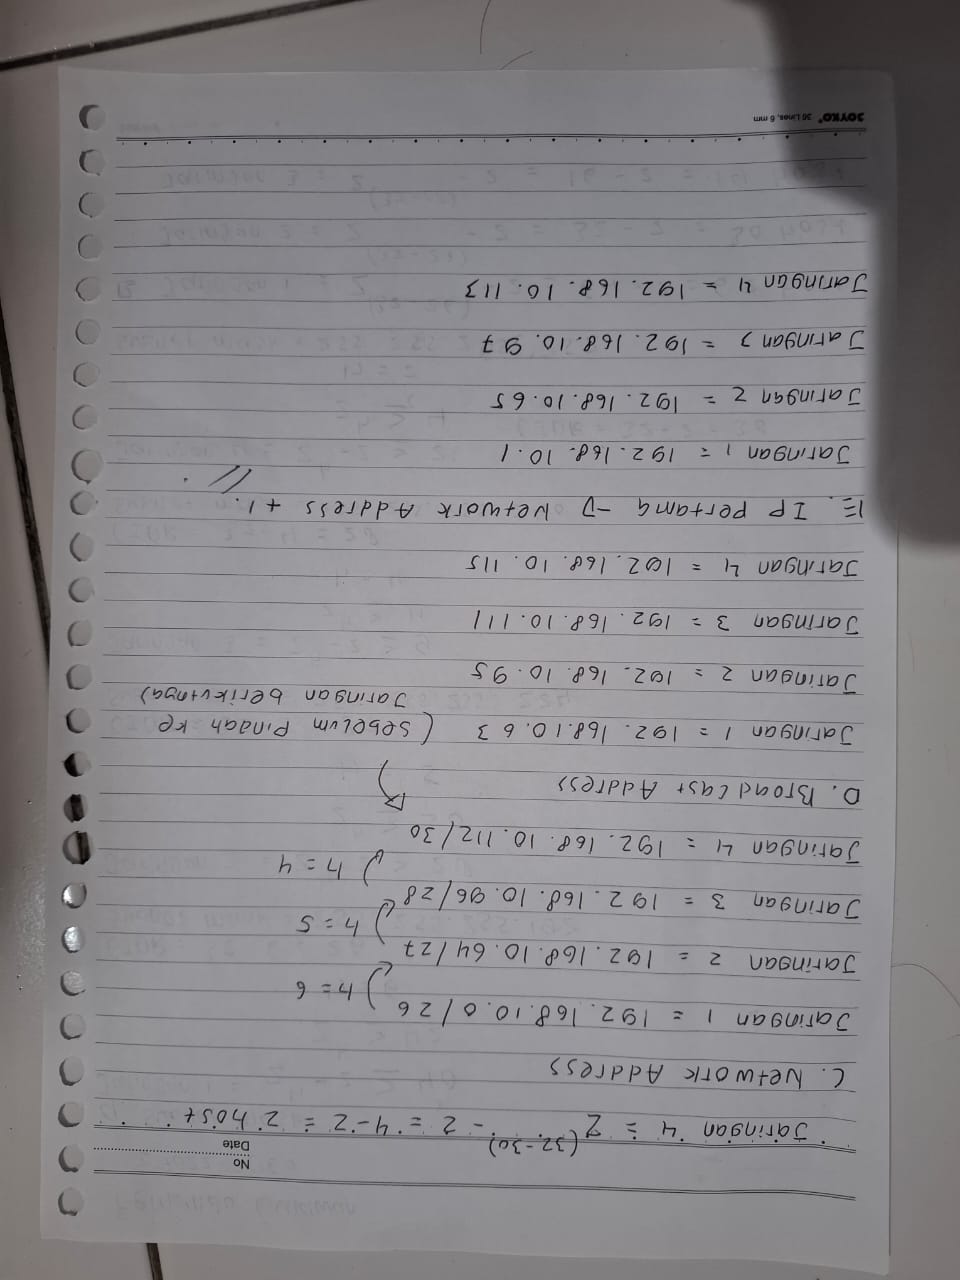 No
Date
Jaringan 4 = 2 (32-30) - 2 = 4-2 = 2 host
C. Network Address
Jaringan 1 = 192.168.10.0/26
h = 6
Jaringan 2 = 192.168.10.64/27
h = 5
Jaringan 3 = 192.168.10.96/28
h = 4
Jaringan 4 = 192.168.10.112/30
D. Broadcast Address
Jaringan 1 = 192.168.10.63 (sebelum Pindah ke
Jaringan berikutnya)
Jaringan 2 = 192.168.10.95
Jaringan 3 = 192.168.10.111
Jaringan 4 = 192.168.10.115
E. IP Pertama → Network Address + 1.
Jaringan 1 = 192.168.10.1
Jaringan 2 = 192.168.10.65
Jaringan 3 = 192.168.10.97
Jaringan 4 = 192.168.10.113
JOYKO® 36 Lines, 6 mm